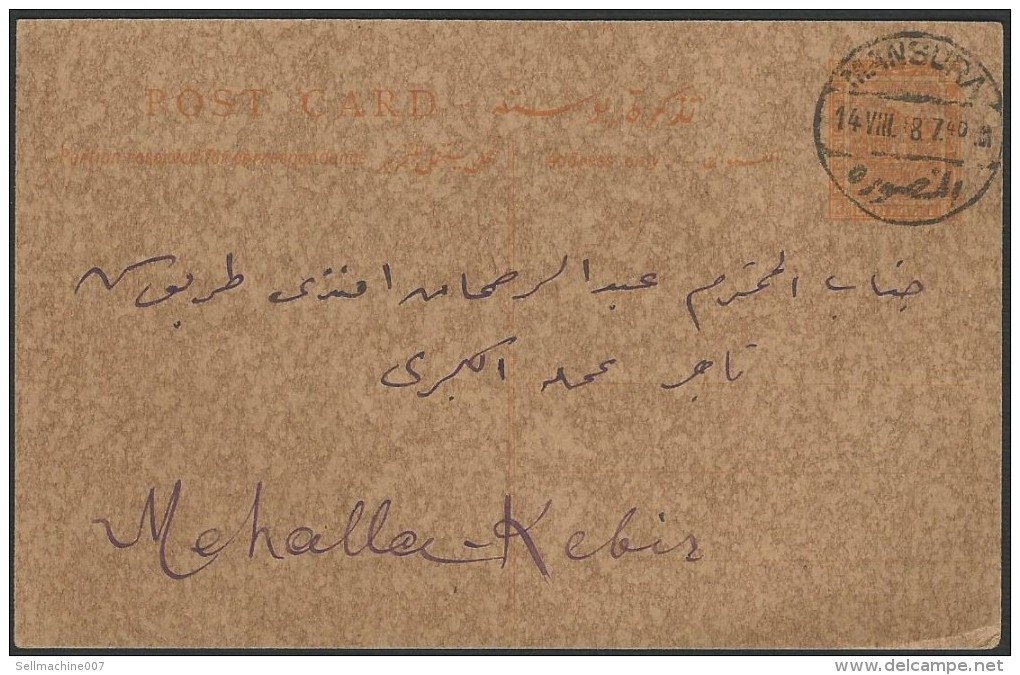 POST CARD تذكرة بوستة
Portion reserved for correspondence Address only
MANSURA
14 VIII. 8 7.40
المنصوره
جناب المحترم عبد الرحمان افندى
تاجر بمحلة الكبرى
Mehalla-Kebir
Sellmachine007
delcampe.net